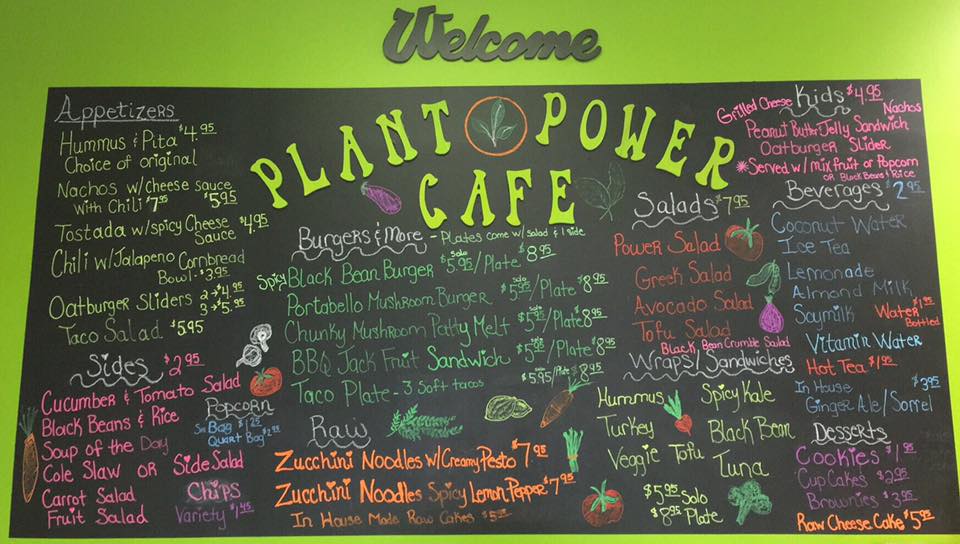 Welcome
PLANT POWER
CAFE
Appetizers
Hummus & Pita $4.95
Choice of original
Nachos w/cheese sauce $5.95
with Chili $7.95
Tostada w/spicy Cheese Sauce $4.95
Chili w/Jalapeno Cornbread
Bowl - $3.95
Oatburger Sliders 2→$4.95
3→$5.95
Taco Salad $5.95
Sides $2.95
Cucumber & Tomato Salad
Black Beans & Rice
Soup of the Day
Cole Slaw OR Side Salad
Carrot Salad
Fruit Salad
Popcorn
Sm Bag $1.25
Quart Bag $2.95
Chips
Variety $1.45
Burgers & More - Plates come w/ salad & 1 side
Spicy Black Bean Burger Solo $5.95/Plate $8.95
Portabello Mushroom Burger Solo $5.95/Plate $8.95
Chunky Mushroom Patty Melt Solo $5.95/Plate 8.95
BBQ Jack Fruit Sandwich Solo $5.95/Plate $8.95
Taco Plate - 3 Soft tacos Solo $5.95/Plate $8.95
Raw
Zucchini Noodles w/Creamy Pesto $7.95
Zucchini Noodles Spicy Lemon Pepper $7.95
In House Made Raw Cakes $5
Salads $7.95
Power Salad
Greek Salad
Avocado Salad
Tofu Salad
Black Bean Crumble Salad
Wraps/Sandwiches
Hummus Spicy Kale
Turkey Black Bean
Veggie Tofu Tuna
$5.95 Solo
$8.95 Plate
Kids $4.95
Grilled Cheese Nachos
Peanut Butter Jelly Sandwich
Oatburger Slider
*Served w/ mix fruit or Popcorn
OR Black Beans & Rice
Beverages $2.95
Coconut Water
Ice Tea
Lemonade
Almond Milk
Soymilk
Water $1.95
Bottled
Vitamin Water
Hot Tea $1.95
In House $3.95
Ginger Ale/Sorrel
Desserts
Cookies $1.95
Cup Cakes $2.95
Brownies $3.95
Raw Cheese Cake $5.95